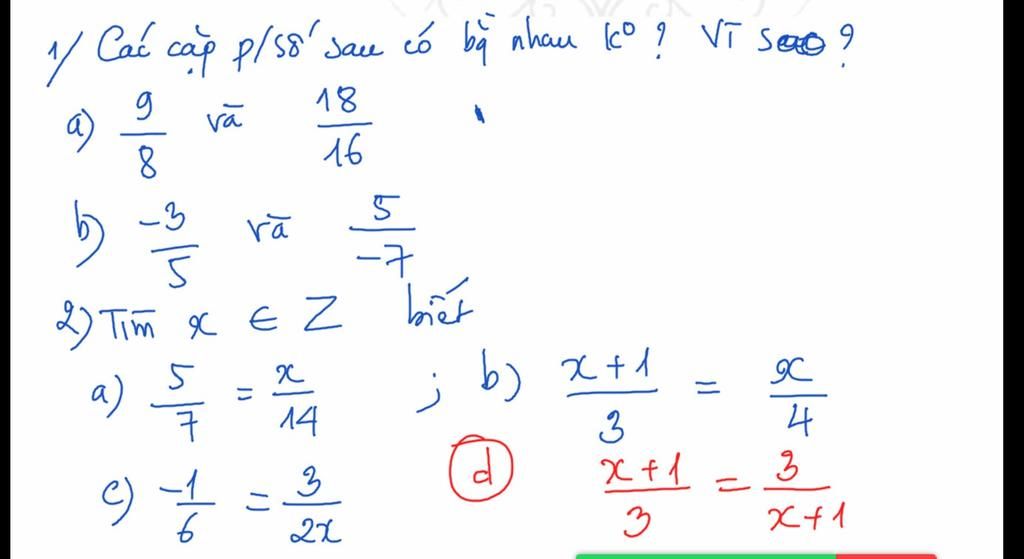 1/ Các cặp p/số sau có bg̀ nhau k⁰? Vì sao?
a) 9/8 và 18/16
b) -3/5 và 5/-7
2) Tìm x ∈ Z biết
a) 5/7 = x/14 ; b) x+1/3 = x/4
c) -1/6 = 3/2x d x+1/3 = 3/x+1